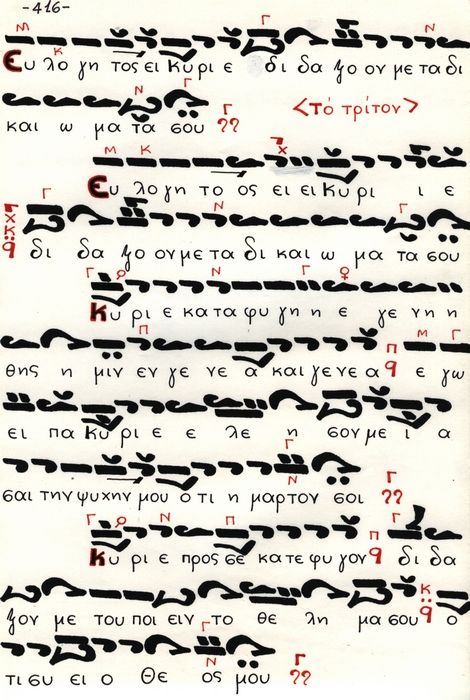 -416-
Ευ λο γη τος ει Κυ ρι ε δι δα ξο ον με τα δι
και ω μα τα σου
<Τό τρίτον>
Ευ λο γη το ος ει ει Κυ ρι ι ε
δι δα ξο ον με τα δι και ω μα τα σου
Κυ ρι ε κα τα φυ γη η ε γε νη η
θης η μιν εν γε νε α και γε νε α ε γω
ει πα κυ ρι ε ε λε η σον με ι α
σαι την ψυχην μου ο τι η μαρτον σοι
Κυ ρι ε προς σε κατε φυ γον δι δα
ξον με του ποι ειν το θε λη μα σου ο
τι συ ει ο Θε ος μου